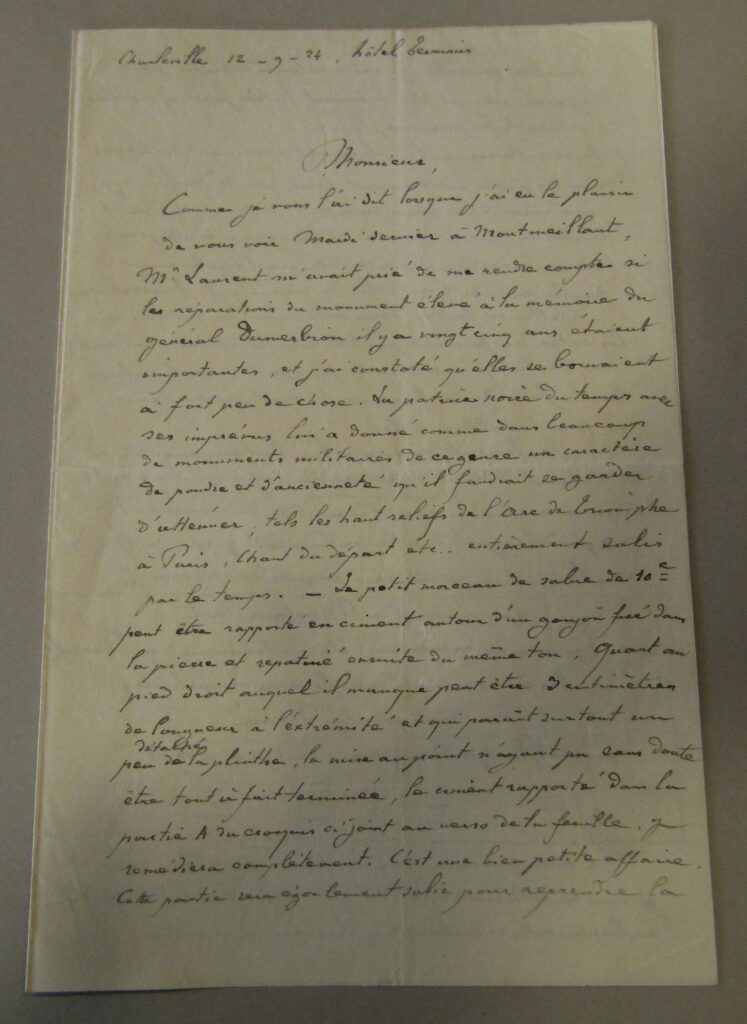 Charleville 12 - 9 - 24, hôtel Terminus
Monsieur,
Comme je vous l'ai dit lorsque j'ai eu le plaisir
de vous voir Mardi dernier à Montmeillant,
Mr Laurent m'avait prié de me rendre compte si
les réparations du monument élevé à la mémoire du
général Dumerbion il y a vingt cinq ans étaient
importantes, et j'ai constaté qu'elles se bornaient
à fort peu de chose. La patine noire du temps avec
ses imprévus lui a donné comme dans beaucoup
de monuments militaires de ce genre un caractère
de poudre et d'ancienneté qu'il faudrait se garder
d'atténuer, tels les haut reliefs de l'Arc de Triomphe
à Paris, Chant du départ etc.. entièrement salis
par le temps. — Le petit morceau de sabre de 10 c
peut être rapporté en ciment autour d'un goujon fixé dans
la pierre et repatiné ensuite du même ton. Quant au
pied droit auquel il manque peut être 3 centimètres
de longueur à l'extrémité et qui paraît surtout un
peu détaché de la plinthe, la mise au point n'ayant pu sans doute
être tout à fait terminée, le ciment rapporté dans la
partie A du croquis ci-joint au verso de la feuille. y
remédiera complètement. C'est une bien petite affaire.
Cette partie sera également salie pour reprendre la